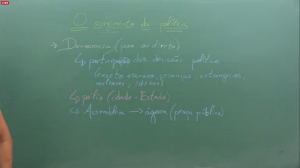 O surgimento da pólis
→ Democracia (para os direitos)
↳ participação das decisões política
(exceto escravos, crianças, estrangeiros,
mulheres, idosos)
↳ pólis (cidade-Estado)
↳ Assembleia → ágora (praça pública)